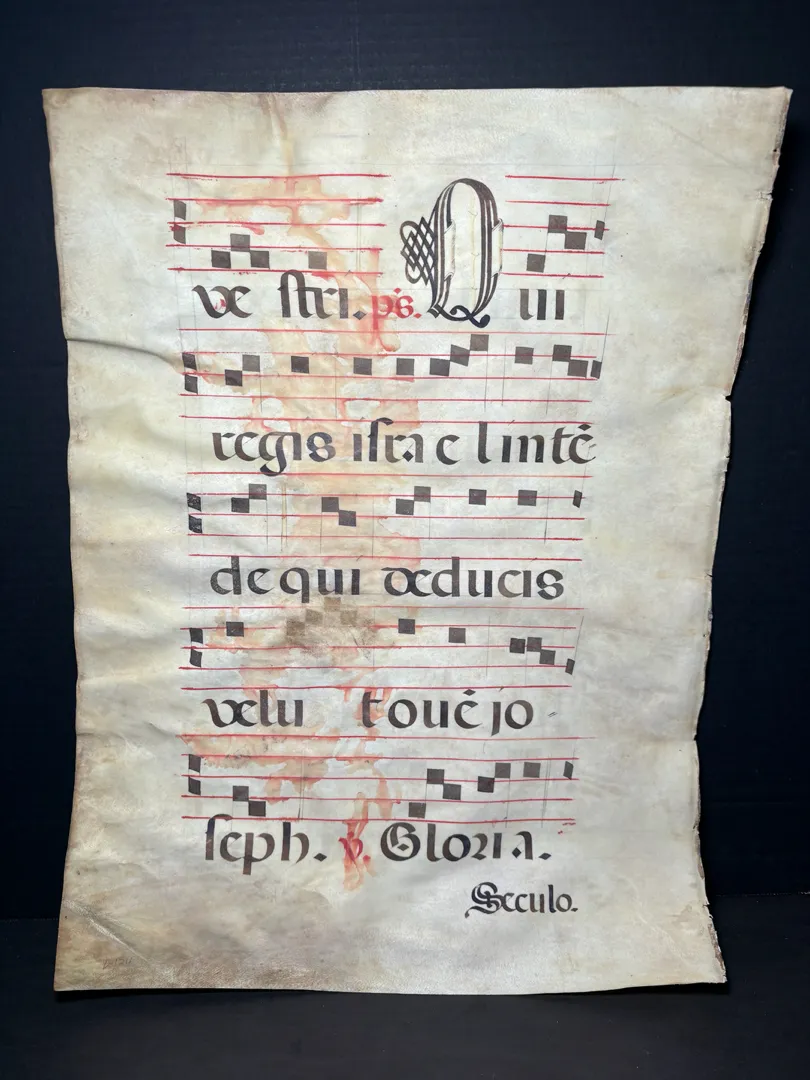 ve stri. ps. Q ui
regis isra e l intē
de qui deducis
velu t ouē jo
seph. v. Gloria.
Seculo.